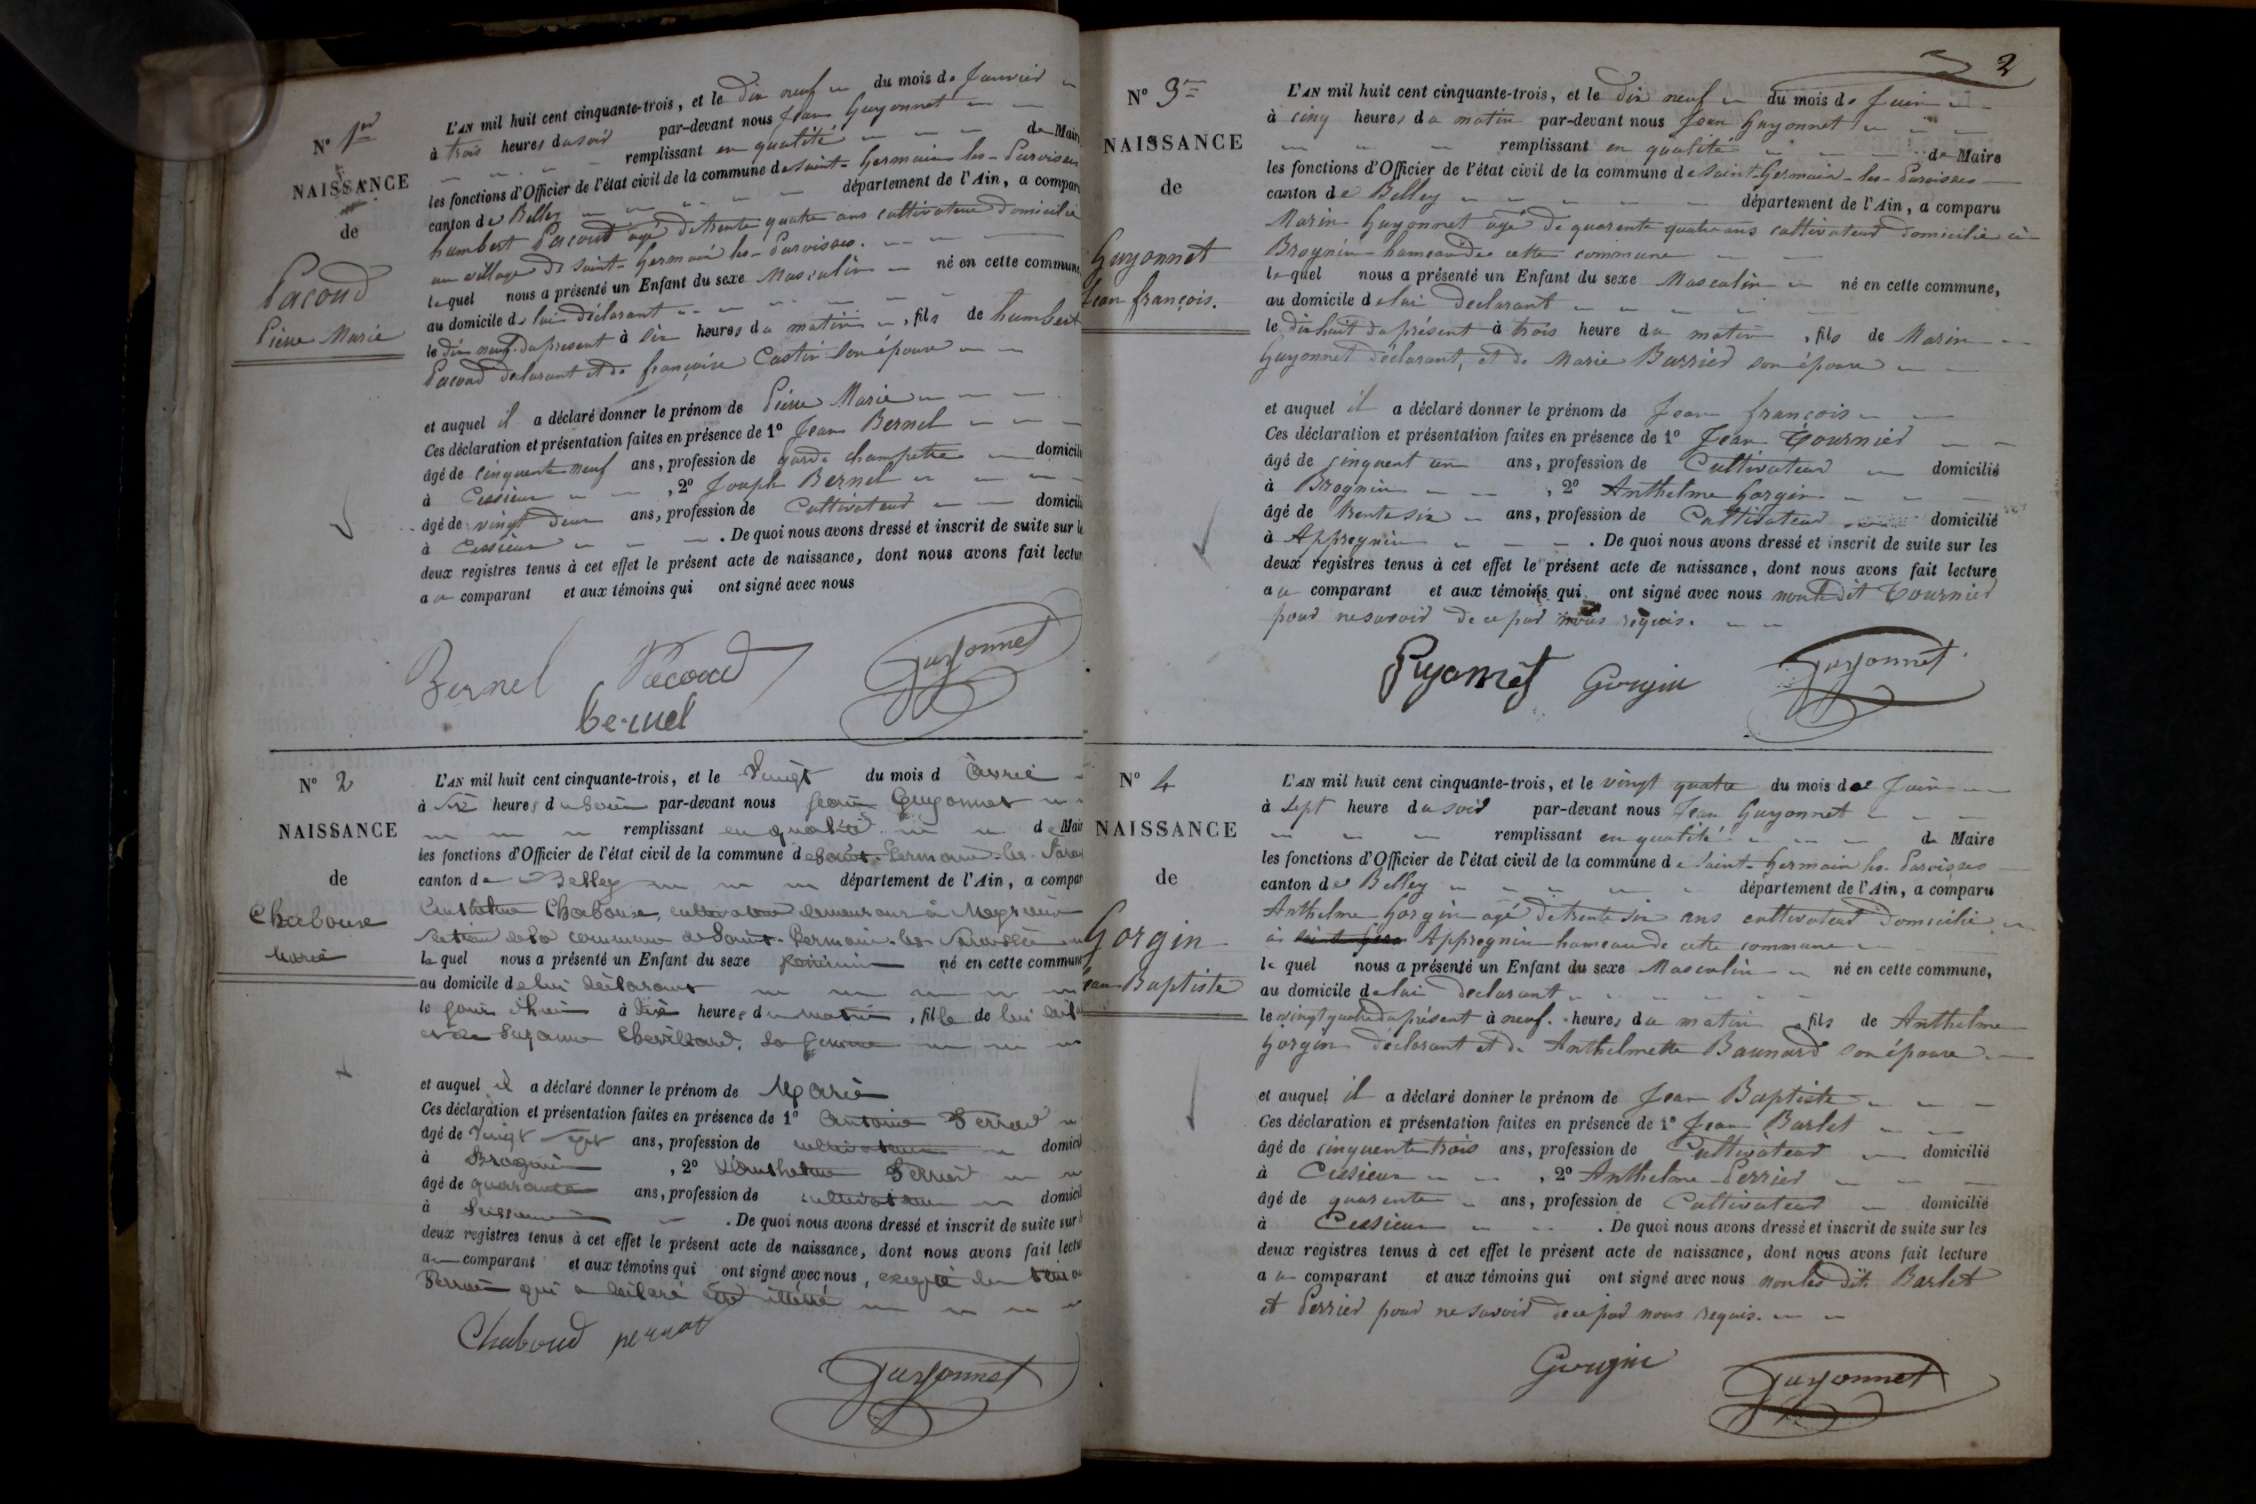 N° 1er
NAISSANCE
de
Pacoud
Pierre Marie
L'AN mil huit cent cinquante-trois, et le dix neuf du mois de Janvier
à trois heures du soir par-devant nous Jean Guyonnet
remplissant en qualité de Maire
les fonctions d'Officier de l'état civil de la commune de Saint-Germain-les-Paroisses
canton de Belley département de l'Ain, a comparu
humbert Pacoud agé de trente quatre ans cultivateur domicilié
au village de Saint-Germain les-Paroisses.
lequel nous a présenté un Enfant du sexe Masculin né en cette commune,
au domicile de lui déclarant
le dix neuf du présent à six heures du matin, fils de humbert
Pacoud déclarant et de françoise Castin son épouse
et auquel il a déclaré donner le prénom de Pierre Marie
Ces déclaration et présentation faites en présence de 1° Jean Bernel
âgé de cinquante neuf ans, profession de garde champetre domicilié
à Cessieux, 2° Joseph Bernel
âgé de vingt deux ans, profession de Cultivateur domicilié
à Cessieux. De quoi nous avons dressé et inscrit de suite sur les
deux registres tenus à cet effet le présent acte de naissance, dont nous avons fait lecture
au comparant et aux témoins qui ont signé avec nous
Bernel Pacoud Guyonnet
bernel
N° 2
NAISSANCE
de
Chaboux
Marie
L'AN mil huit cent cinquante-trois, et le Vingt du mois d'Avril
à Six heures du Soir par-devant nous Jean Guyonnet
remplissant en qualité de Maire
les fonctions d'Officier de l'état civil de la commune de Saint-Germain-les-Paroi
canton de Belley département de l'Ain, a comparu
Anthelme Chaboux, cultivateur demeurant à Meyrieu
Section de la commune de Saint-Germain-les-Paroisses
lequel nous a présenté un Enfant du sexe féminin né en cette commune
au domicile de lui déclarant
le jour d'hier à dix heures du matin, fille de lui décla
et de Suzanne Chevillard, sa femme
et auquel il a déclaré donner le prénom de Marie
Ces déclaration et présentation faites en présence de 1° Antoine
âgé de Vingt Sept ans, profession de cultivateur domicil
à Brognin, 2° Anthelme
âgé de quarante ans, profession de cultivateur domicil
à . De quoi nous avons dressé et inscrit de suite sur
deux registres tenus à cet effet le présent acte de naissance, dont nous avons fait lectu
au comparant et aux témoins qui ont signé avec nous, excepté
qui a déclaré être illettré
Chaboud
Guyonnet
2
N° 3me
NAISSANCE
de
Guyonnet
Jean françois.
L'AN mil huit cent cinquante-trois, et le dix neuf du mois de Juin
à cinq heures du matin par-devant nous Jean Guyonnet
remplissant en qualité de Maire
les fonctions d'Officier de l'état civil de la commune de Saint-Germain-les-Paroisses
canton de Belley département de l'Ain, a comparu
Marin Guyonnet agé de quarente quatre ans cultivateur domicilié à
Brognin hameau de cette commune
lequel nous a présenté un Enfant du sexe Masculin né en cette commune,
au domicile de lui declarant
le dix huit du présent à trois heure du matin, fils de Marin
Guyonnet déclarant, et de Marie Burrier son épouse
et auquel il a déclaré donner le prénom de Jean françois
Ces déclaration et présentation faites en présence de 1° Jean Tournier
âgé de cinquent un ans, profession de Cultivateur domicilié
à Brognin, 2° Anthelme Gorgin
âgé de trente six ans, profession de Cultivateur domicilié
à Appregnin. De quoi nous avons dressé et inscrit de suite sur les
deux registres tenus à cet effet le présent acte de naissance, dont nous avons fait lecture
au comparant et aux témoins qui ont signé avec nous non le dit Tournier
pour ne savoir de ce par nous requis.
Guyonnet Gorgin Guyonnet
N° 4
NAISSANCE
de
Gorgin
Jean Baptiste
L'AN mil huit cent cinquante-trois, et le vingt quatre du mois de Juin
à Sept heure du soir par-devant nous Jean Guyonnet
remplissant en qualité de Maire
les fonctions d'Officier de l'état civil de la commune de Saint-Germain les-Paroisses
canton de Belley département de l'Ain, a comparu
Anthelme Gorgin agé de trente six ans cultivateur domicilié
à Saint Germ Appregnin hameau de cette commune
lequel nous a présenté un Enfant du sexe Masculin né en cette commune,
au domicile de lui declarant
le vingt quatre du présent à neuf heures du matin, fils de Anthelme
Gorgin déclarant et de Anthelmette Baunard son épouse
et auquel il a déclaré donner le prénom de Jean Baptiste
Ces déclaration et présentation faites en présence de 1° Jean Barlet
âgé de cinquente trois ans, profession de Cultivateur domicilié
à Cessieux, 2° Anthelme Perrier
âgé de quarente ans, profession de Cultivateur domicilié
à Cessieux. De quoi nous avons dressé et inscrit de suite sur les
deux registres tenus à cet effet le présent acte de naissance, dont nous avons fait lecture
au comparant et aux témoins qui ont signé avec nous non les dits Barlet
et Perrier pour ne savoir de ce par nous requis.
Gorgin
Guyonnet